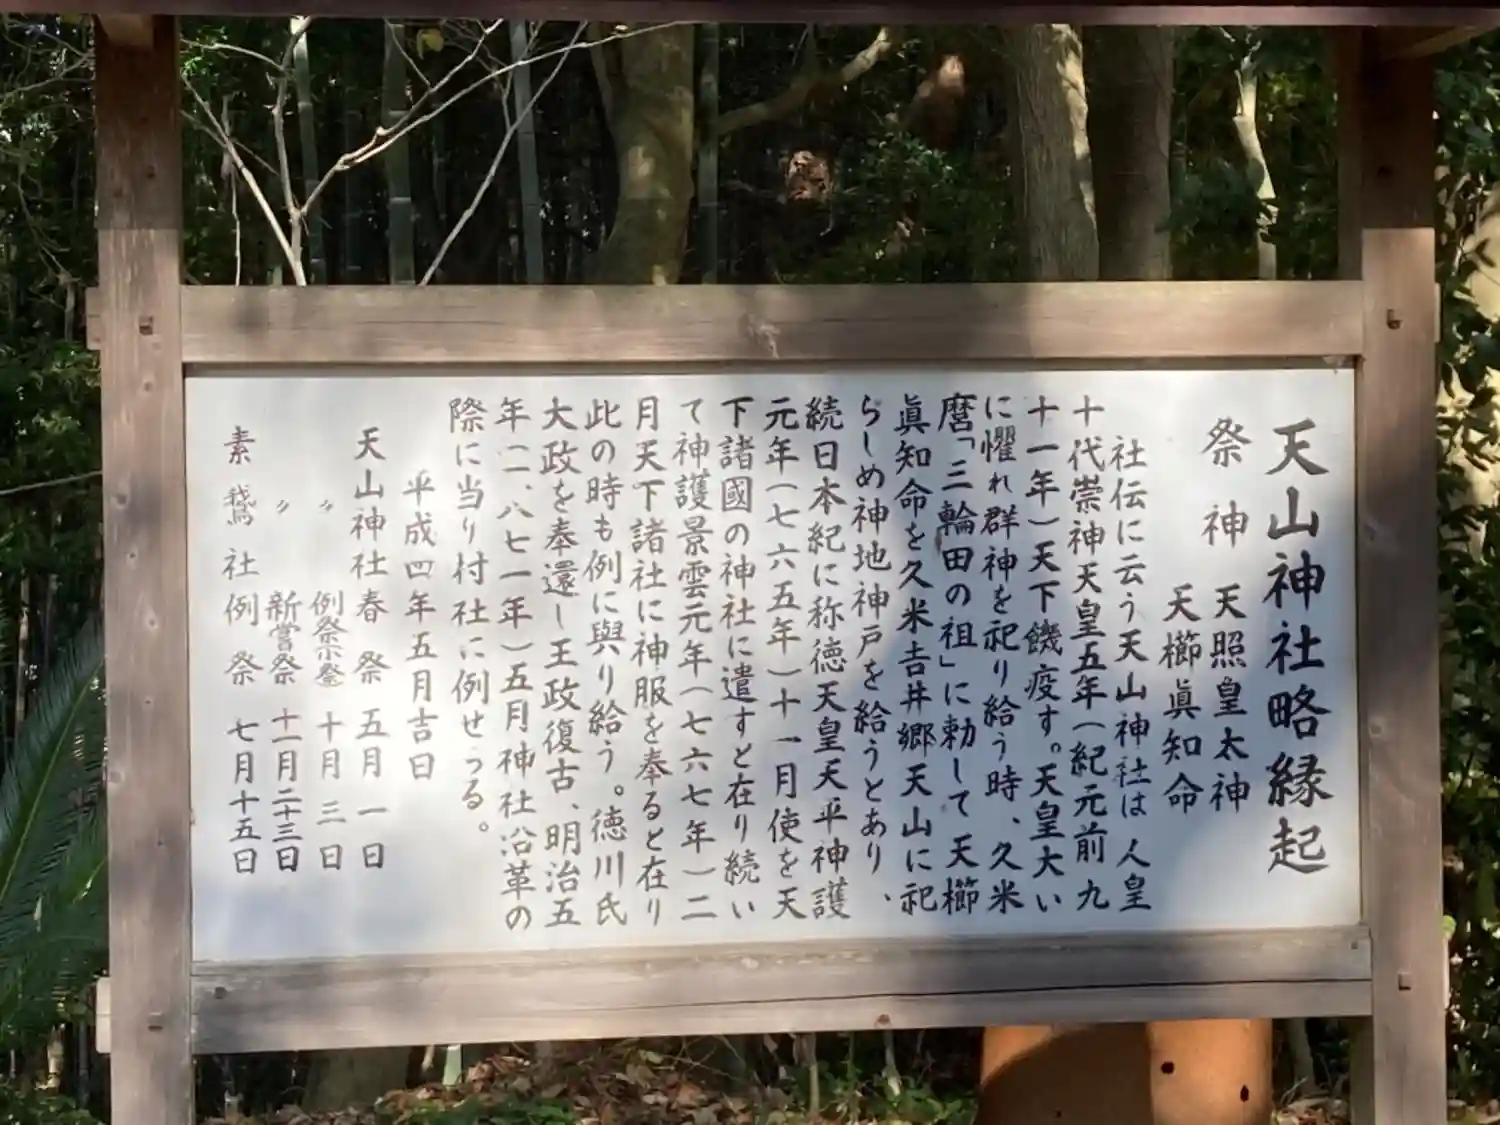 天山神社略縁起
祭神 天照皇太神
天櫛眞知命
社伝に云う天山神社は人皇
十代崇神天皇五年(紀元前九
十一年)天下饑疫す。天皇大い
に懼れ群神を祀り給う時、久米
麿「三輪田の祖」に勅して天櫛
眞知命を久米吉井郷天山に祀
らしめ神地神戸を給うとあり、
続日本紀に称徳天皇天平神護
元年(七六五年)十一月使を天
下諸國の神社に遣すと在り続い
て神護景雲元年(七六七年)二
月天下諸社に神服を奉ると在り
此の時も例に與り給う。徳川氏
大政を奉還し王政復古、明治五
年(一、八七一年)五月神社沿革の
際に当り村社に例せらる。
平成四年五月吉日
天山神社春祭 五月一日
〃 例祭 十月三日
〃 新嘗祭 十一月二十三日
素鵞社例祭 七月十五日